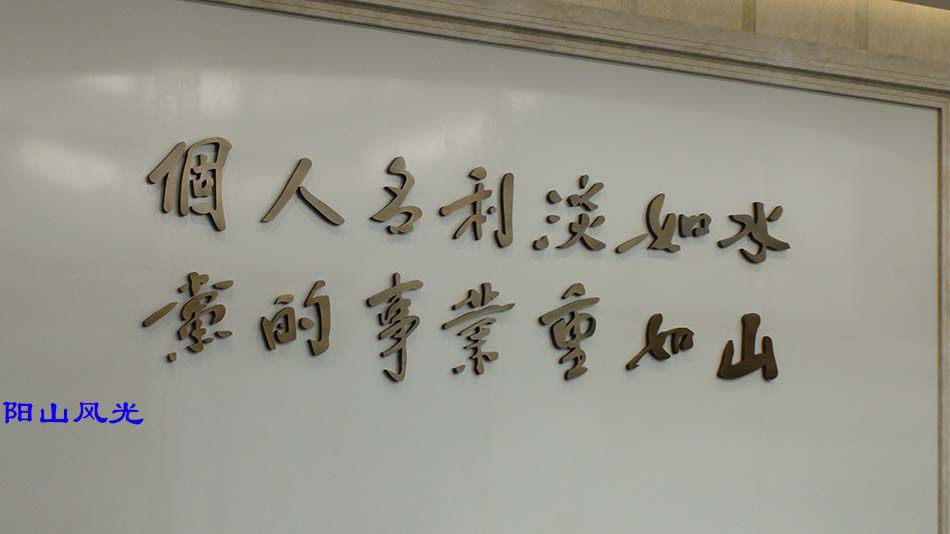 個人名利淡如水
黨的事業重如山
阳山风光